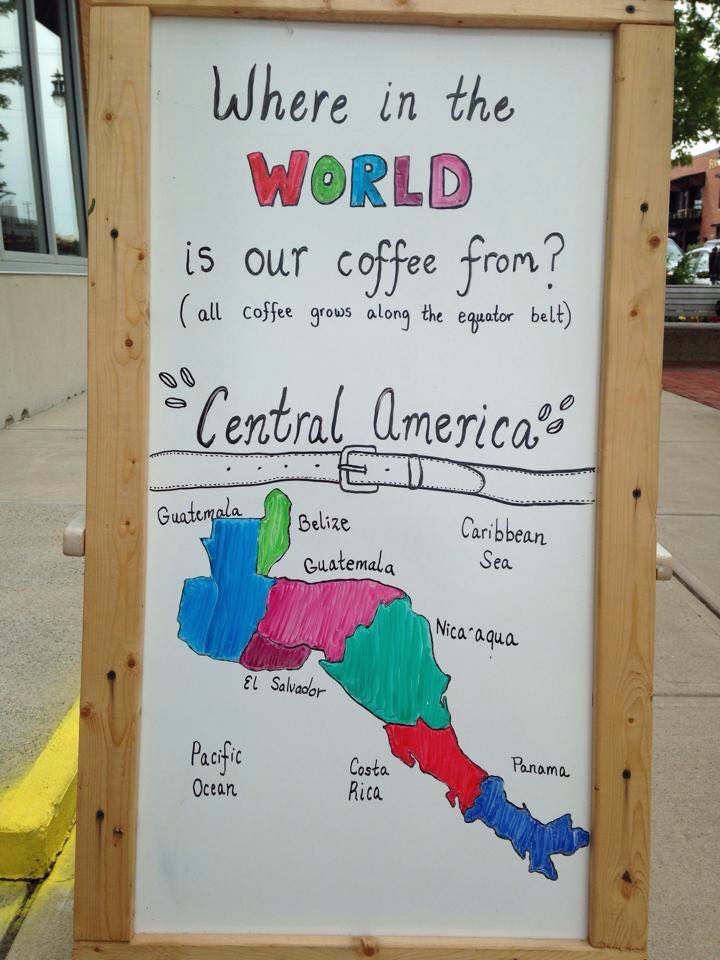 Where in the
WORLD
is our coffee from?
(all coffee grows along the equator belt)
Central America
Guatemala
Belize
Caribbean
Sea
Guatemala
Nica aqua
El Salvador
Pacific
Ocean
Costa
Rica
Panama